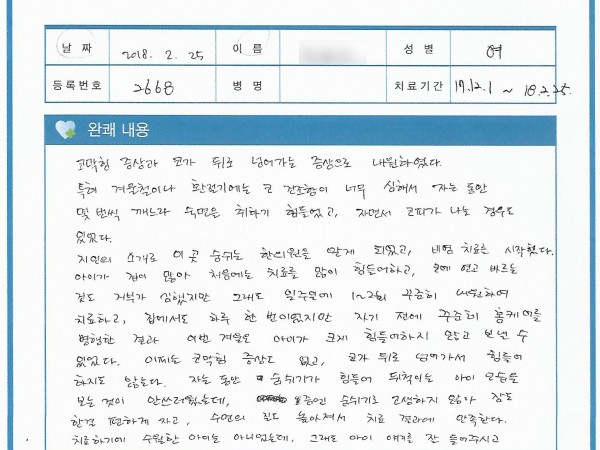 날 짜 2018. 2. 25 이 름 성 별 여
등록번호 2668 병 명 치료기간 17.12.1 ~ 18.2.25.
완쾌 내용
코막힘 증상과 코가 뒤로 넘어가는 증상으로 내원하였다.
특히 겨울철이나 환절기에는 코 건조함이 너무 심해서 자는 동안
몇 번씩 깨느라 숙면은 취하기 힘들었고, 자면서 코피가 나는 경우도
있었다.
지인의 소개로 이 곳 숨쉬는 한의원을 알게 되었고, 비염 치료를 시작했다.
아이가 겁이 많아 처음에는 치료를 많이 힘들어하고, 코에 연고 바르는
것도 거부가 심했지만 그래도 일주일에 1~2회 꾸준히 내원하여
치료하고, 집에서도 하루 한 번이었지만 자기 전에 꾸준히 홈케어를
병행한 결과 이번 겨울은 아이가 크게 힘들어하지 않고 보낼 수
있었다. 이제는 코막힘 증상도 없고, 코가 뒤로 넘어가서 힘들어
하지도 않는다. 자는 동안 숨쉬기가 힘들어 뒤척이는 아이 모습을
보는 것이 안쓰러웠는데, 숨쉬기로 고생하지 않아 잠도
한결 편하게 자고, 수면의 질도 높아져서 치료 결과에 만족한다.
치료하기에 수월한 아이는 아니었는데, 그래도 아이 얘기를 잘 들어주시고